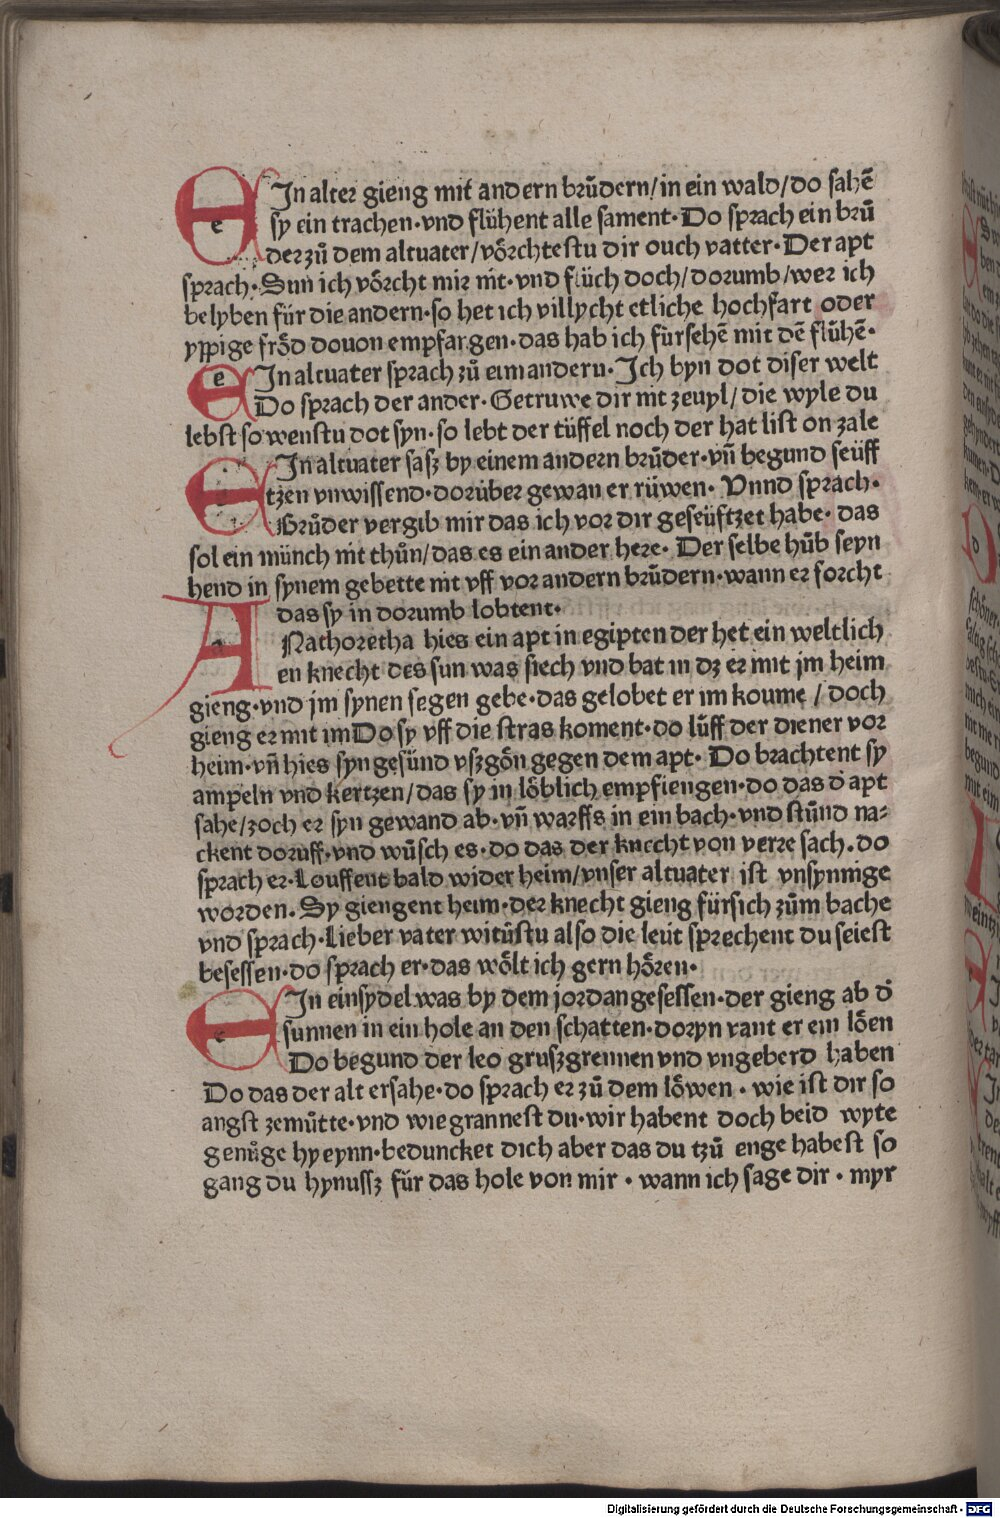 EIn alter gieng mit andern brůdern/in ein wald/do sahē
sy ein trachen·vnd flühent alle sament· Do sprach ein brů
der zů dem altuater/vörchtestu dir ouch vatter· Der apt
sprach·Sun ich vörcht mir nit·vnd flüch doch/dorumb/wer ich
belyben für die andern·so het ich villycht etliche hochfart oder
yppige fröd douon empfangen·das hab ich fürsehē mit dē flühē·
EIn altuater sprach zů eim andern· Ich byn dot diser welt
Do sprach der ander· Getruwe dir nit zeuyl/ die wyle du
lebst so wenstu dot syn·so lebt der tüffel noch der hat list on zale
EIn altuater sasz by einem andern brůder·vn̄ begund seüff
tzen vnwissend·dorüber gewan er rüwen· Vnnd sprach·
Brůder vergib mir das ich vor dir geseüftzet habe· das
sol ein münch nit thůn/das es ein ander here· Der selbe hůb seyn
hend in synem gebette nit vff vor andern brůdern·wann er forcht
das sy in dorumb lobtent·
ANathoretha hies ein apt in egipten der het ein weltlich
en knecht des sun was siech vnd bat in dz er mit jm heim
gieng·vnd jm synen segen gebe·das gelobet er im koume / doch
gieng er mit im Do sy vff die stras koment·do lůff der diener vor
heim·vn̄ hies syn gesünd vszgön gegen dem apt· Do brachtent sy
ampeln vnd kertzen/das sy in löblich empfiengen·do das d̄ apt
sahe/zoch er syn gewand ab·vn̄ warffs in ein bach·vnd stůnd na⸗
ckent doruff·vnd wůsch es·do das der knecht von verre sach·do
sprach er·Louffent bald wider heim/vnser altuater ist vnsynnige
worden·Sy giengent heim·der knecht gieng fürsich zům bache
vnd sprach·Lieber vater witůstu also die leüt sprechent du seiest
besessen·do sprach er·das wölt ich gern hören·
EIn einsydel was by dem jordan gesessen·der gieng ab d̄
sunnen in ein hole an den schatten·doryn vant er ein löen
Do begund der leo gruszgrennen vnd vngeberd haben
Do das der alt ersahe·do sprach er zů dem löwen · wie ist dir so
angst zemůtte·vnd wie grannest du·wir habent doch beid wyte
genůge hyeynn·beduncket dich aber das du tzů enge habest so
gang du hynussz für das hole von mir · wann ich sage dir · myr
Digitalisierung gefördert durch die Deutsche Forschungsgemeinschaft - DFG